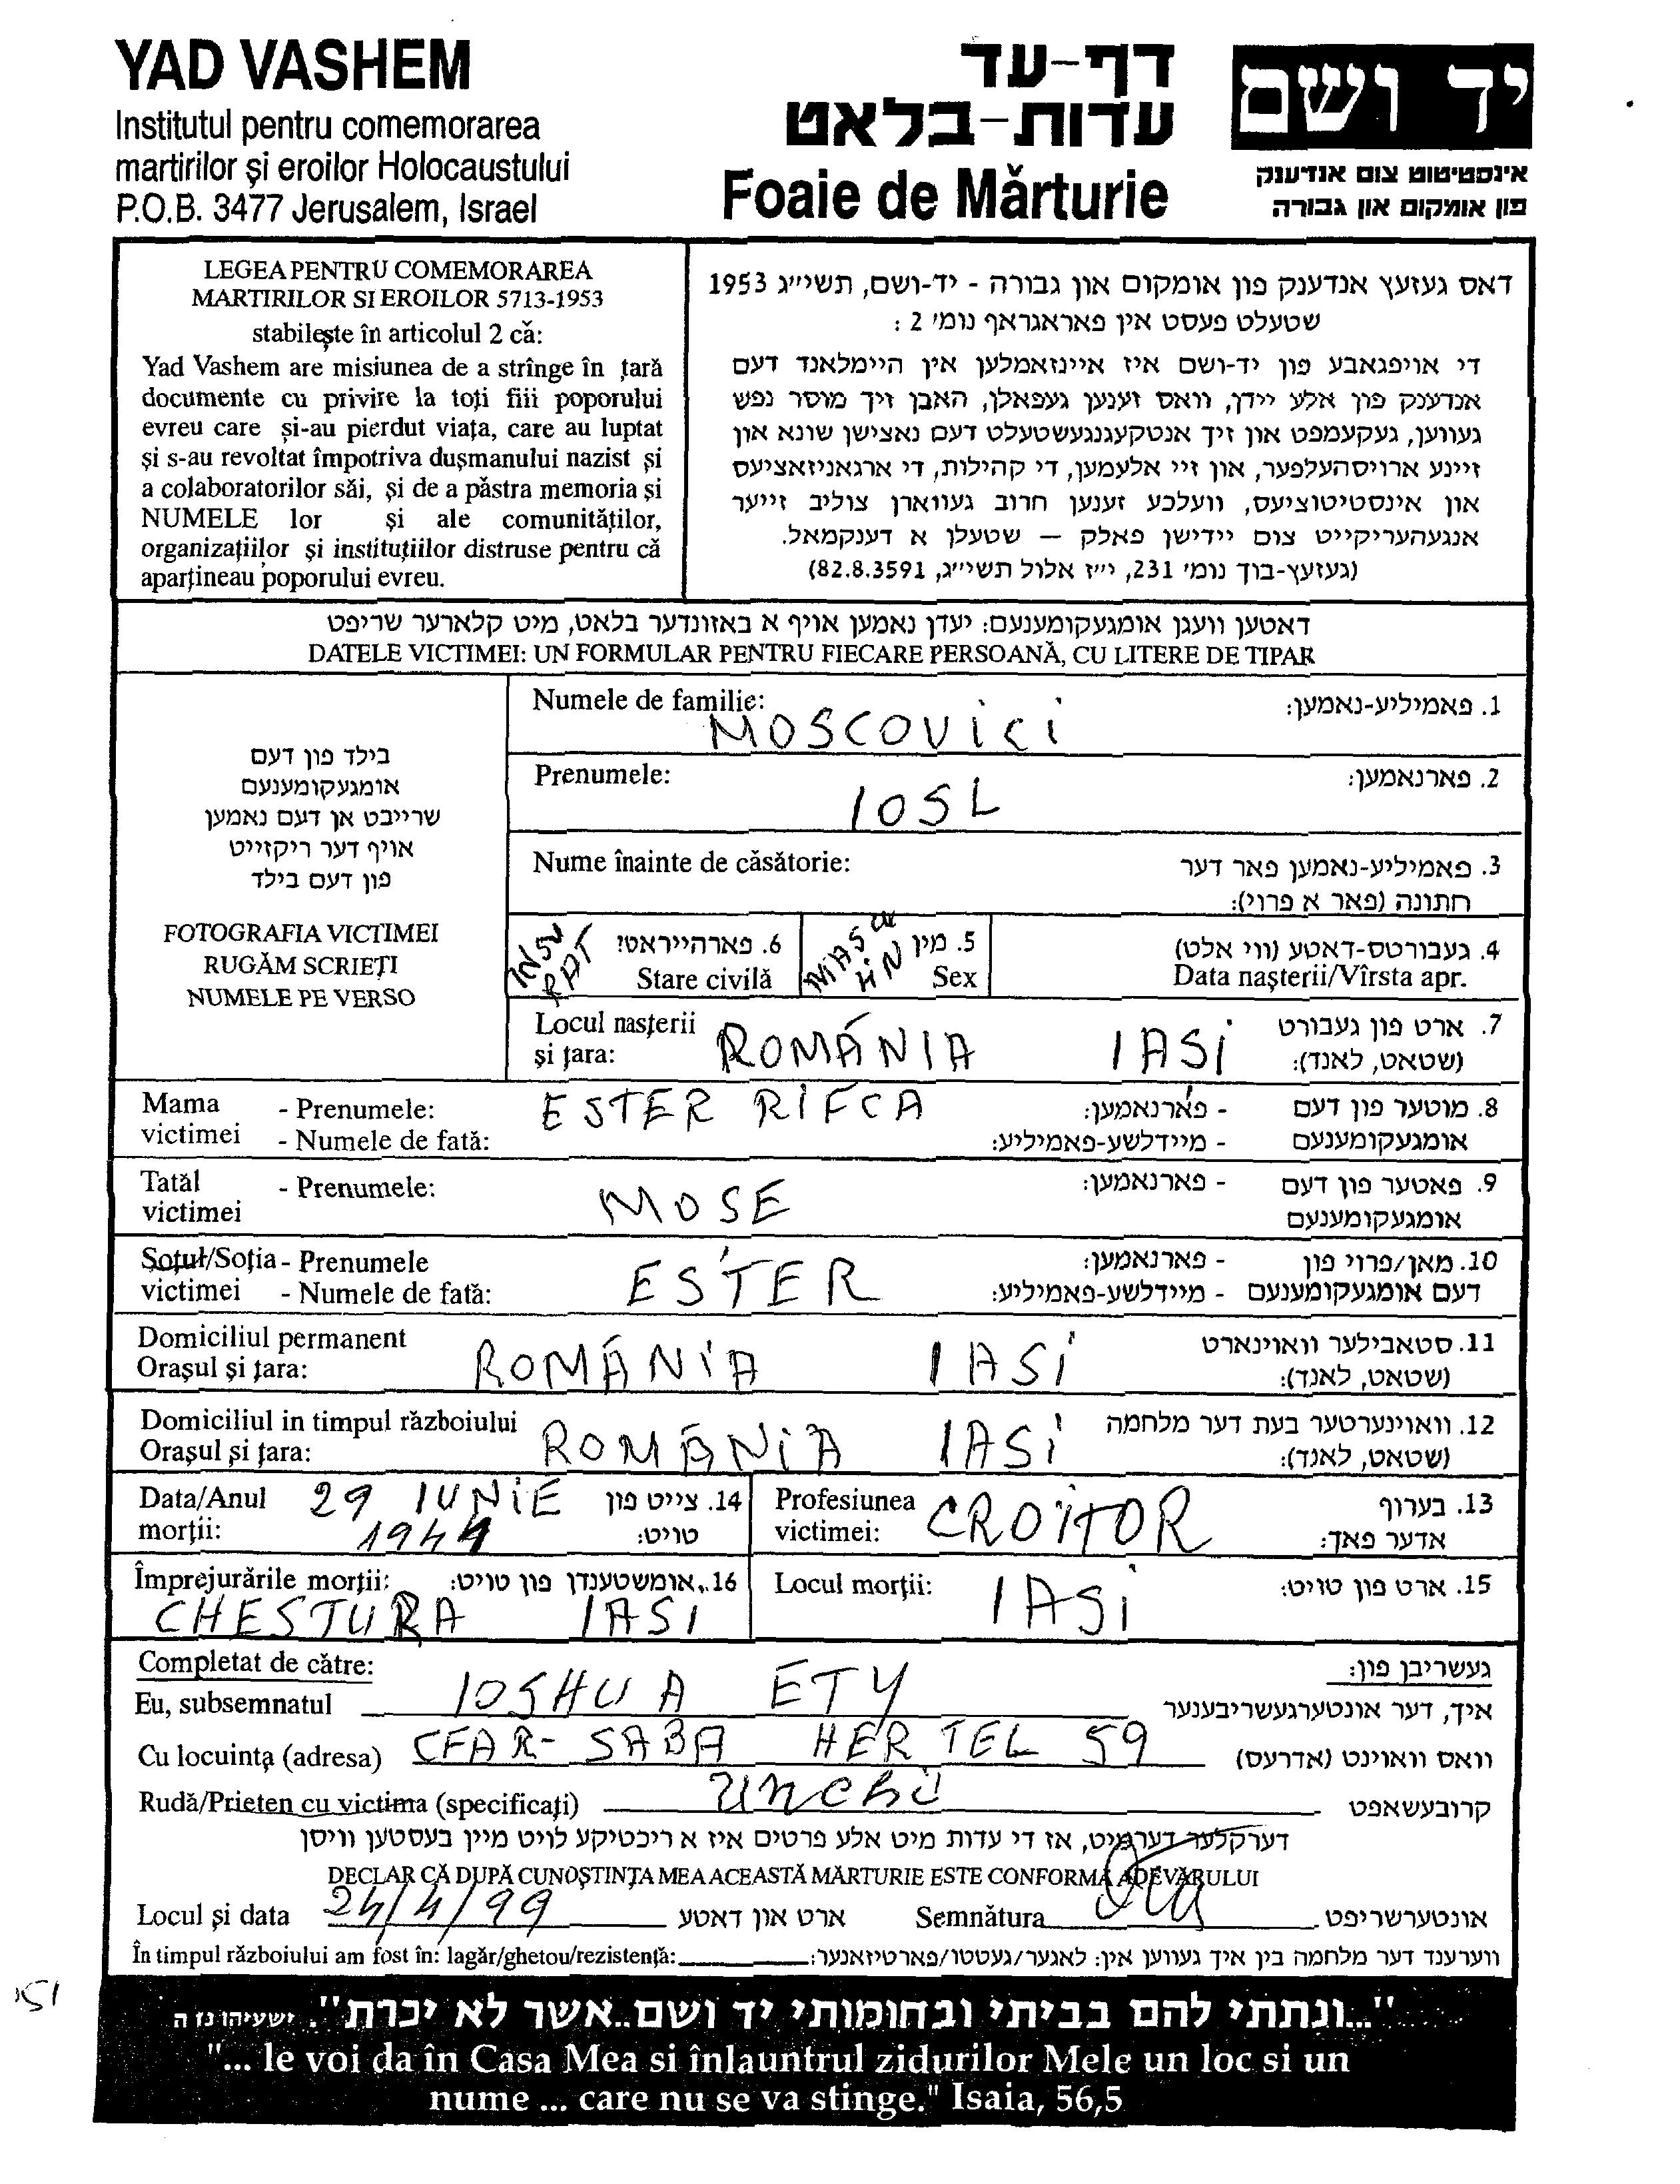 YAD VASHEM
Institutul pentru comemorarea
martirilor și eroilor Holocaustului
P.O.B. 3477 Jerusalem, Israel
דף-עד
עדות-בלאט
Foaie de Mărturie
יד ושם
אינסטיטוט צום אנדענק
פון אומקום און גבורה
LEGEA PENTRU COMEMORAREA
MARTIRILOR SI EROILOR 5713-1953
stabilește în articolul 2 că:
Yad Vashem are misiunea de a strînge în țară
documente cu privire la toți fiii poporului
evreu care și-au pierdut viața, care au luptat
și s-au revoltat împotriva dușmanului nazist și
a colaboratorilor săi, și de a păstra memoria și
NUMELE lor și ale comunităților,
organizațiilor și instituțiilor distruse pentru că
aparțineau poporului evreu.
דאס געזעץ אנדענק פון אומקום און גבורה - יד-ושם, תשי״ג 1953
שטעלט פעסט אין פאראגראף נומ׳ 2 :
די אויפגאבע פון יד-ושם איז איינזאמלען אין היימלאנד דעם
אנדענק פון אלע יידן, וואס זענען געפאלן, האבן זיך מוסר נפש
געווען, געקעמפט און זיך אנטקעגנגעשטעלט דעם נאצישן שונא און
זיינע ארויסהעלפער, און זיי אלעמען, די קהילות, די ארגאניזאציעס
און אינסטיטוציעס, וועלכע זענען חרוב געווארן צוליב זייער
אנגעהעריקייט צום יידישן פאלק — שטעלן א דענקמאל.
(געזעץ-בוך נומ׳ 231, י״ז אלול תשי״ג, 82.8.3591)
דאטען וועגן אומגעקומענעם: יעדן נאמען אויף א באזונדער בלאט, מיט קלארער שריפט
DATELE VICTIMEI: UN FORMULAR PENTRU FIECARE PERSOANĂ, CU LITERE DE TIPAR
בילד פון דעם
אומגעקומענעם
שרייבט אן דעם נאמען
אויף דער ריקזייט
פון דעם בילד
FOTOGRAFIA VICTIMEI
RUGĂM SCRIEȚI
NUMELE PE VERSO
Numele de familie: MOSCOVICI 1. פאמיליע-נאמען:
Prenumele: IOSL 2. פארנאמען:
Nume înainte de căsătorie: 3. פאמיליע-נאמען פאר דער
חתונה (פאר א פרוי):
INSU RAT 6. פארהייראט? Stare civilă
MASCU LIN 5. מין Sex
4. געבורטס-דאטע (ווי אלט)
Data nașterii/Vîrsta apr.
Locul nașterii
și țara: ROMÁNIA IASI 7. ארט פון געבורט
(שטאט, לאנד):
Mama - Prenumele: ESTER RIFCA - פארנאמען: 8. מוטער פון דעם
victimei - Numele de fată: - מיידלשע-פאמיליע: אומגעקומענעם
Tatăl - Prenumele: MOSE - פארנאמען: 9. פאטער פון דעם
victimei אומגעקומענעם
Soțul/Soția - Prenumele ESTER - פארנאמען: 10. מאן/פרוי פון
victimei - Numele de fată: - מיידלשע-פאמיליע: דעם אומגעקומענעם
Domiciliul permanent 11. סטאבילער וואוינארט
Orașul și țara: ROMÁNIA IASI (שטאט, לאנד):
Domiciliul in timpul războiului 12. וואוינערטער בעת דער מלחמה
Orașul și țara: ROMÁNIA IASI (שטאט, לאנד):
Data/Anul 29 IUNIE 14. צייט פון
morții: 1944 טויט:
Profesiunea 13. בערוף
victimei: CROITOR אדער פאך:
Împrejurările morții: 16. אומשטענדן פון טויט:
CHESTURA IASI
Locul morții: IASI 15. ארט פון טויט:
Completat de către: געשריבן פון:
Eu, subsemnatul IOSHUA ETY איך, דער אונטערגעשריבענער
Cu locuința (adresa) CFAR-SABA HERTEL 59 וואס וואוינט (אדרעס)
Rudă/Prieten cu victima (specificați) Unchi קרובעשאפט
דערקלער דערמיט, אז די עדות מיט אלע פרטים איז א ריכטיקע לויט מיין בעסטען וויסן
DECLAR CĂ DUPĂ CUNOȘTINȚA MEA ACEASTĂ MĂRTURIE ESTE CONFORMĂ ADEVĂRULUI
Locul și data 24/4/99 ארט און דאטע Semnătura אונטערשריפט
În timpul războiului am fost în: lagăr/ghetou/rezistență: ווערענד דער מלחמה בין איך געווען אין: לאגער/געטטו/פארטיזאנער:
"...ונתתי להם בביתי ובחומותי יד ושם..אשר לא יכרת". ישעיהו נו ה
"... le voi da în Casa Mea si înlauntrul zidurilor Mele un loc si un
nume ... care nu se va stinge." Isaia, 56,5